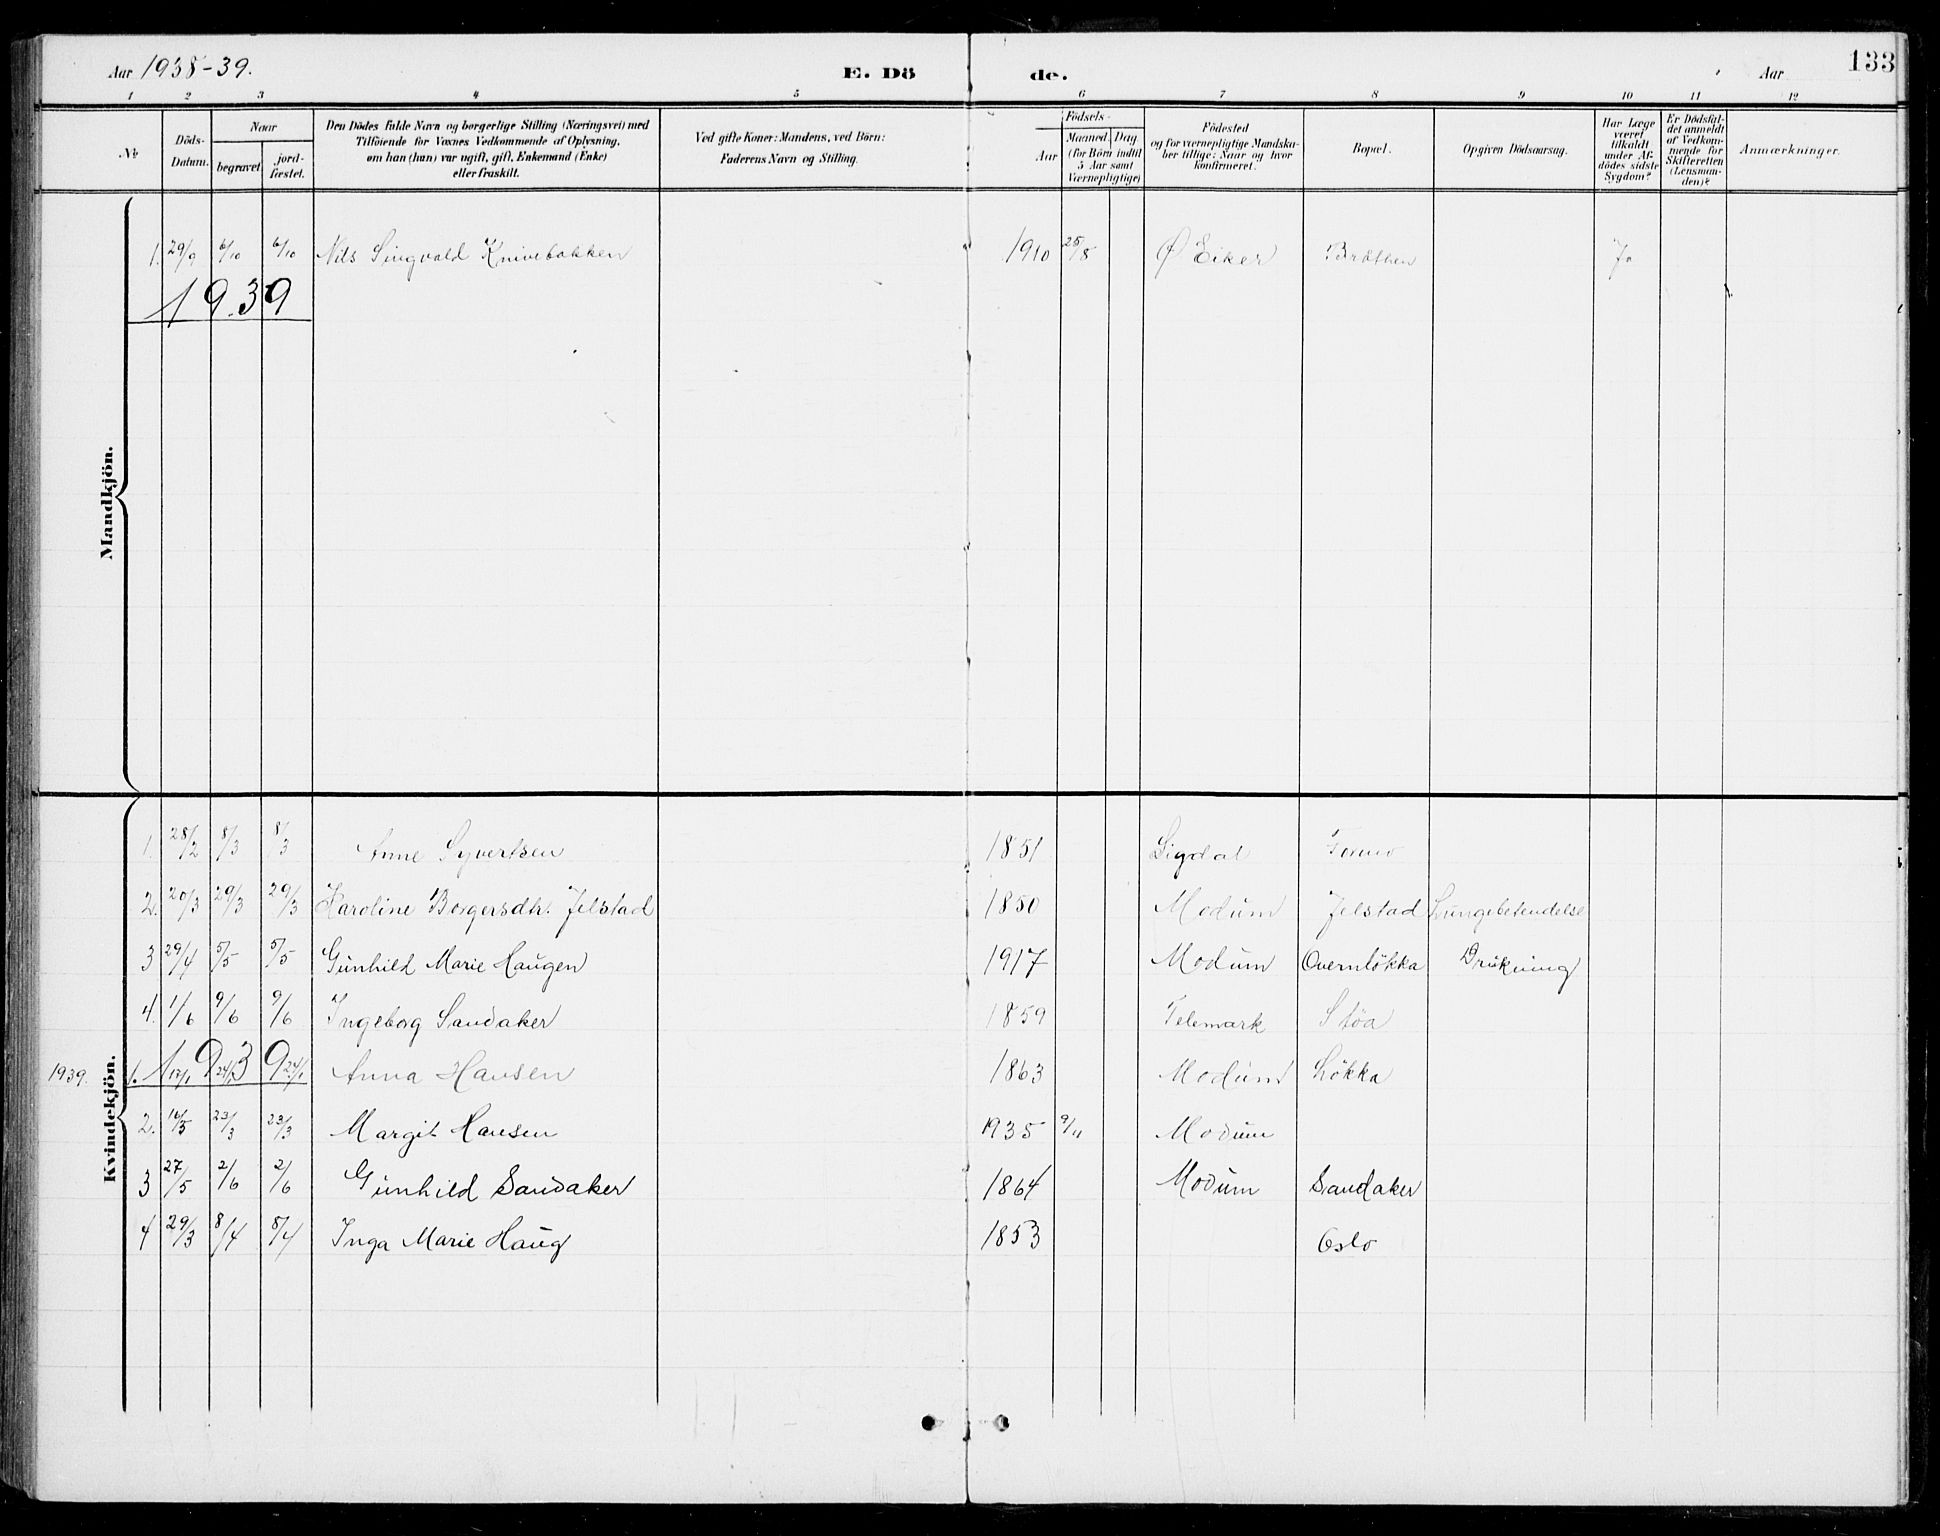 Aar 1938-39. E. Dö de. Aar 133
1 2 3 4 5 6 7 8 9 10 11 12
No
Döds-Datum.
Naar
begravet
jord-fæstet.
Den Dödes fulde Navn og borgerlige Stilling (Næringsvei) med
Tilföiende for Voxnes Vedkommende af Oplysning,
om han (hun) var ugift, gift, Enkemand (Enke)
eller fraskilt.
Ved gifte Koner: Mandens, ved Börn:
Faderens Navn og Stilling.
Födsels-
Aar
Maaned. Dag.
(for Börn indtil
5 Aar samt
Værnepligtige)
Födested
og for værnepligtige Mandska-
ber tillige: Naar og hvor
konfirmeret.
Bopæl.
Opgiven Dödsaarsag.
Har Læge
været
tilkaldt
under Af-
dödes sidste
Sygdom?
Er Dödsfal-
det anmeldt
af Vedkom-
mende for
Skifteretten
(Lensman-
den)?
Anmærkninger.
Mandkjön.
1. 29/9 6/10 6/10 Nils Singvald Knivebakken 1910 25/8 Ø Eiker Bråthen Ja
1939
Kvindekjön.
1. 28/2 8/3 8/3 Anne Syvertsen 1851 Sigdal
2. 20/3 29/3 29/3 Karoline Borgersdtr. Jelstad 1850 Modum Jelstad Lungebetendelse
3 29/4 5/5 5/5 Gunhild Marie Haugen 1917 Modum Overnløkka Drukning
4. 1/6 9/6 9/6 Ingeborg Sandaker 1859 Telemark Støa
1939
1939. 1. 24/1 24/1 Anna Hansen 1863 Modum Løkka
2. 16/3 23/3 23/3 Margit Hansen 1935 9/11 Modum
3 27/5 2/6 2/6 Gunhild Sandaker 1864 Modum Sandaker
4 29/3 8/4 8/4 Inga Marie Haug 1853 Oslo